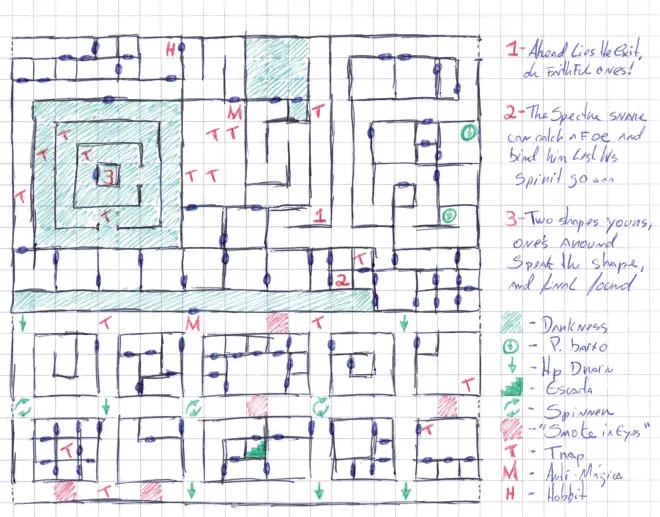 H
M T
T T T
T T
T 3
T T
T 1
T
T 2
T M T
T
T
T
T
1- Ahead lies the Exit,
oh Faithful ones!
2- The Spectre snare
can catch a Foe and
bind him last his
Spirit go
3- Two shapes yours,
one's around
Speak the shape,
and final found
- Darkness
- P. baixo
- Hp Drain
- Escada
- Spinner
- "Smoke in Eyes"
T - Trap
M - Anti-Mágica
H - Hobbit